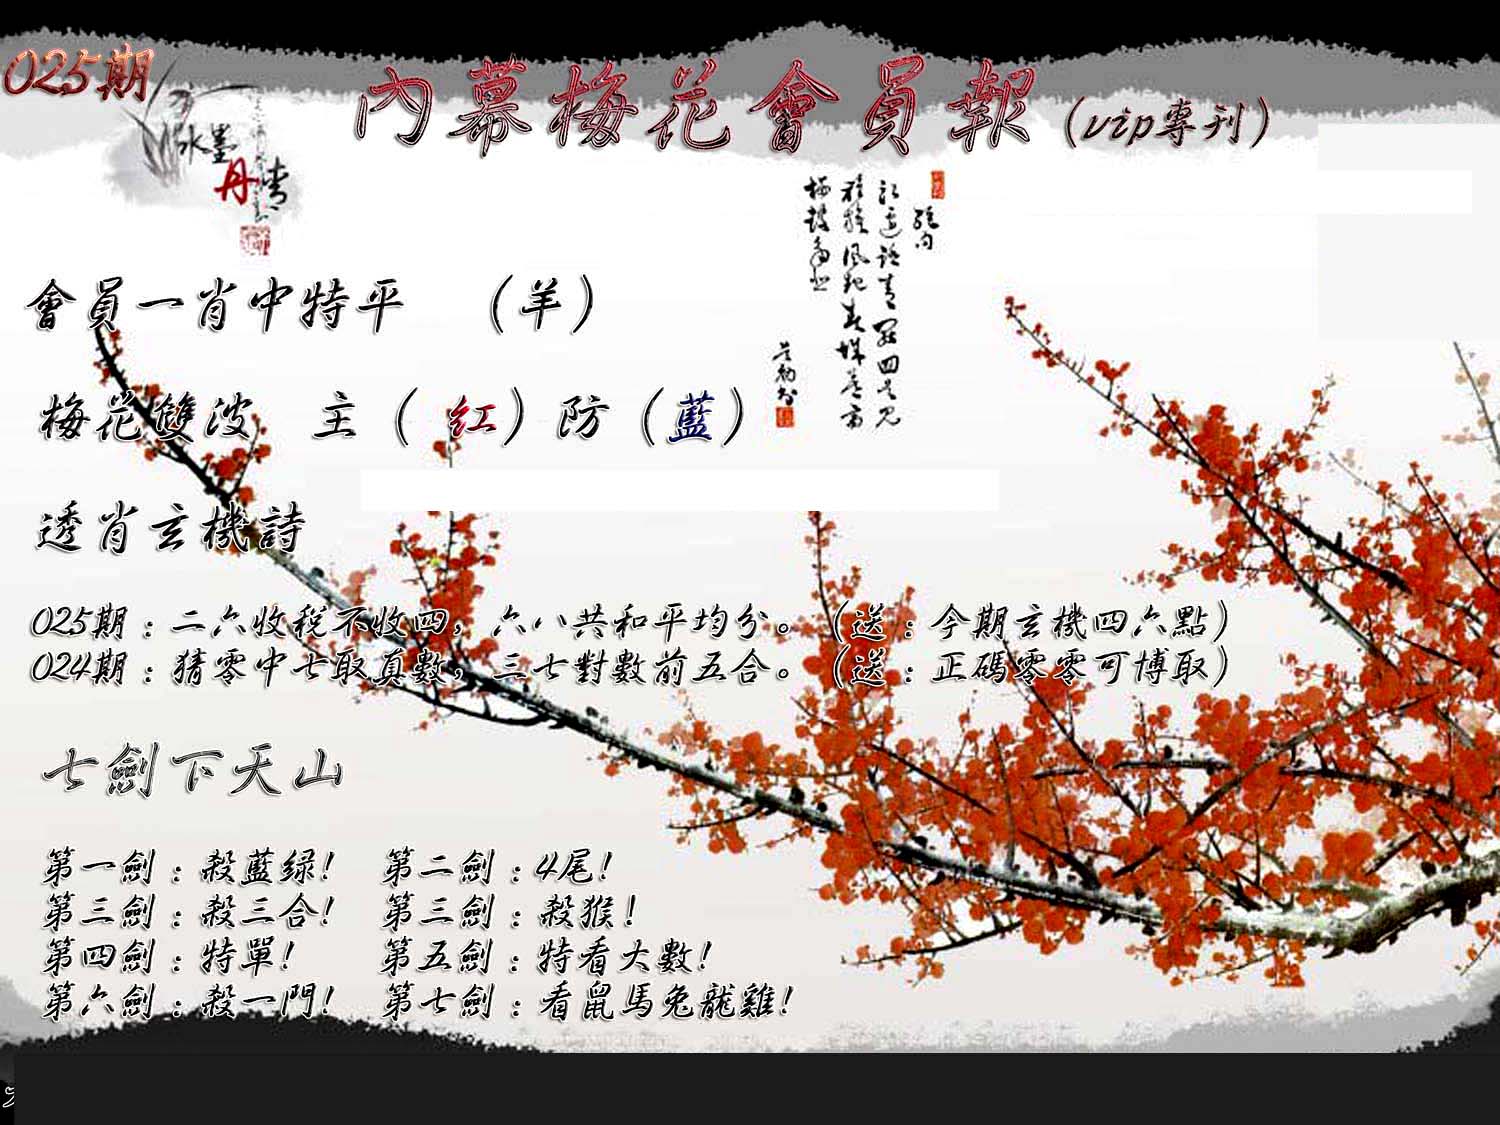 025期
內幕梅花會員報(vip專刊)
水墨
丹青
會員一肖中特平 (羊)
梅花雙波 主(紅)防(藍)
透肖玄機詩
025期:二六收税不收四,六八共和平均分。(送:今期玄機四六點)
024期:猜零中七取真數,三七對數前五合。(送:正碼零零可博取)
七劍下天山
第一劍:殺藍绿! 第二劍:4尾!
第三劍:殺三合! 第三劍:殺猴!
第四劍:特單! 第五劍:特看大數!
第六劍:殺一門! 第七劍:看鼠馬兔龍雞!